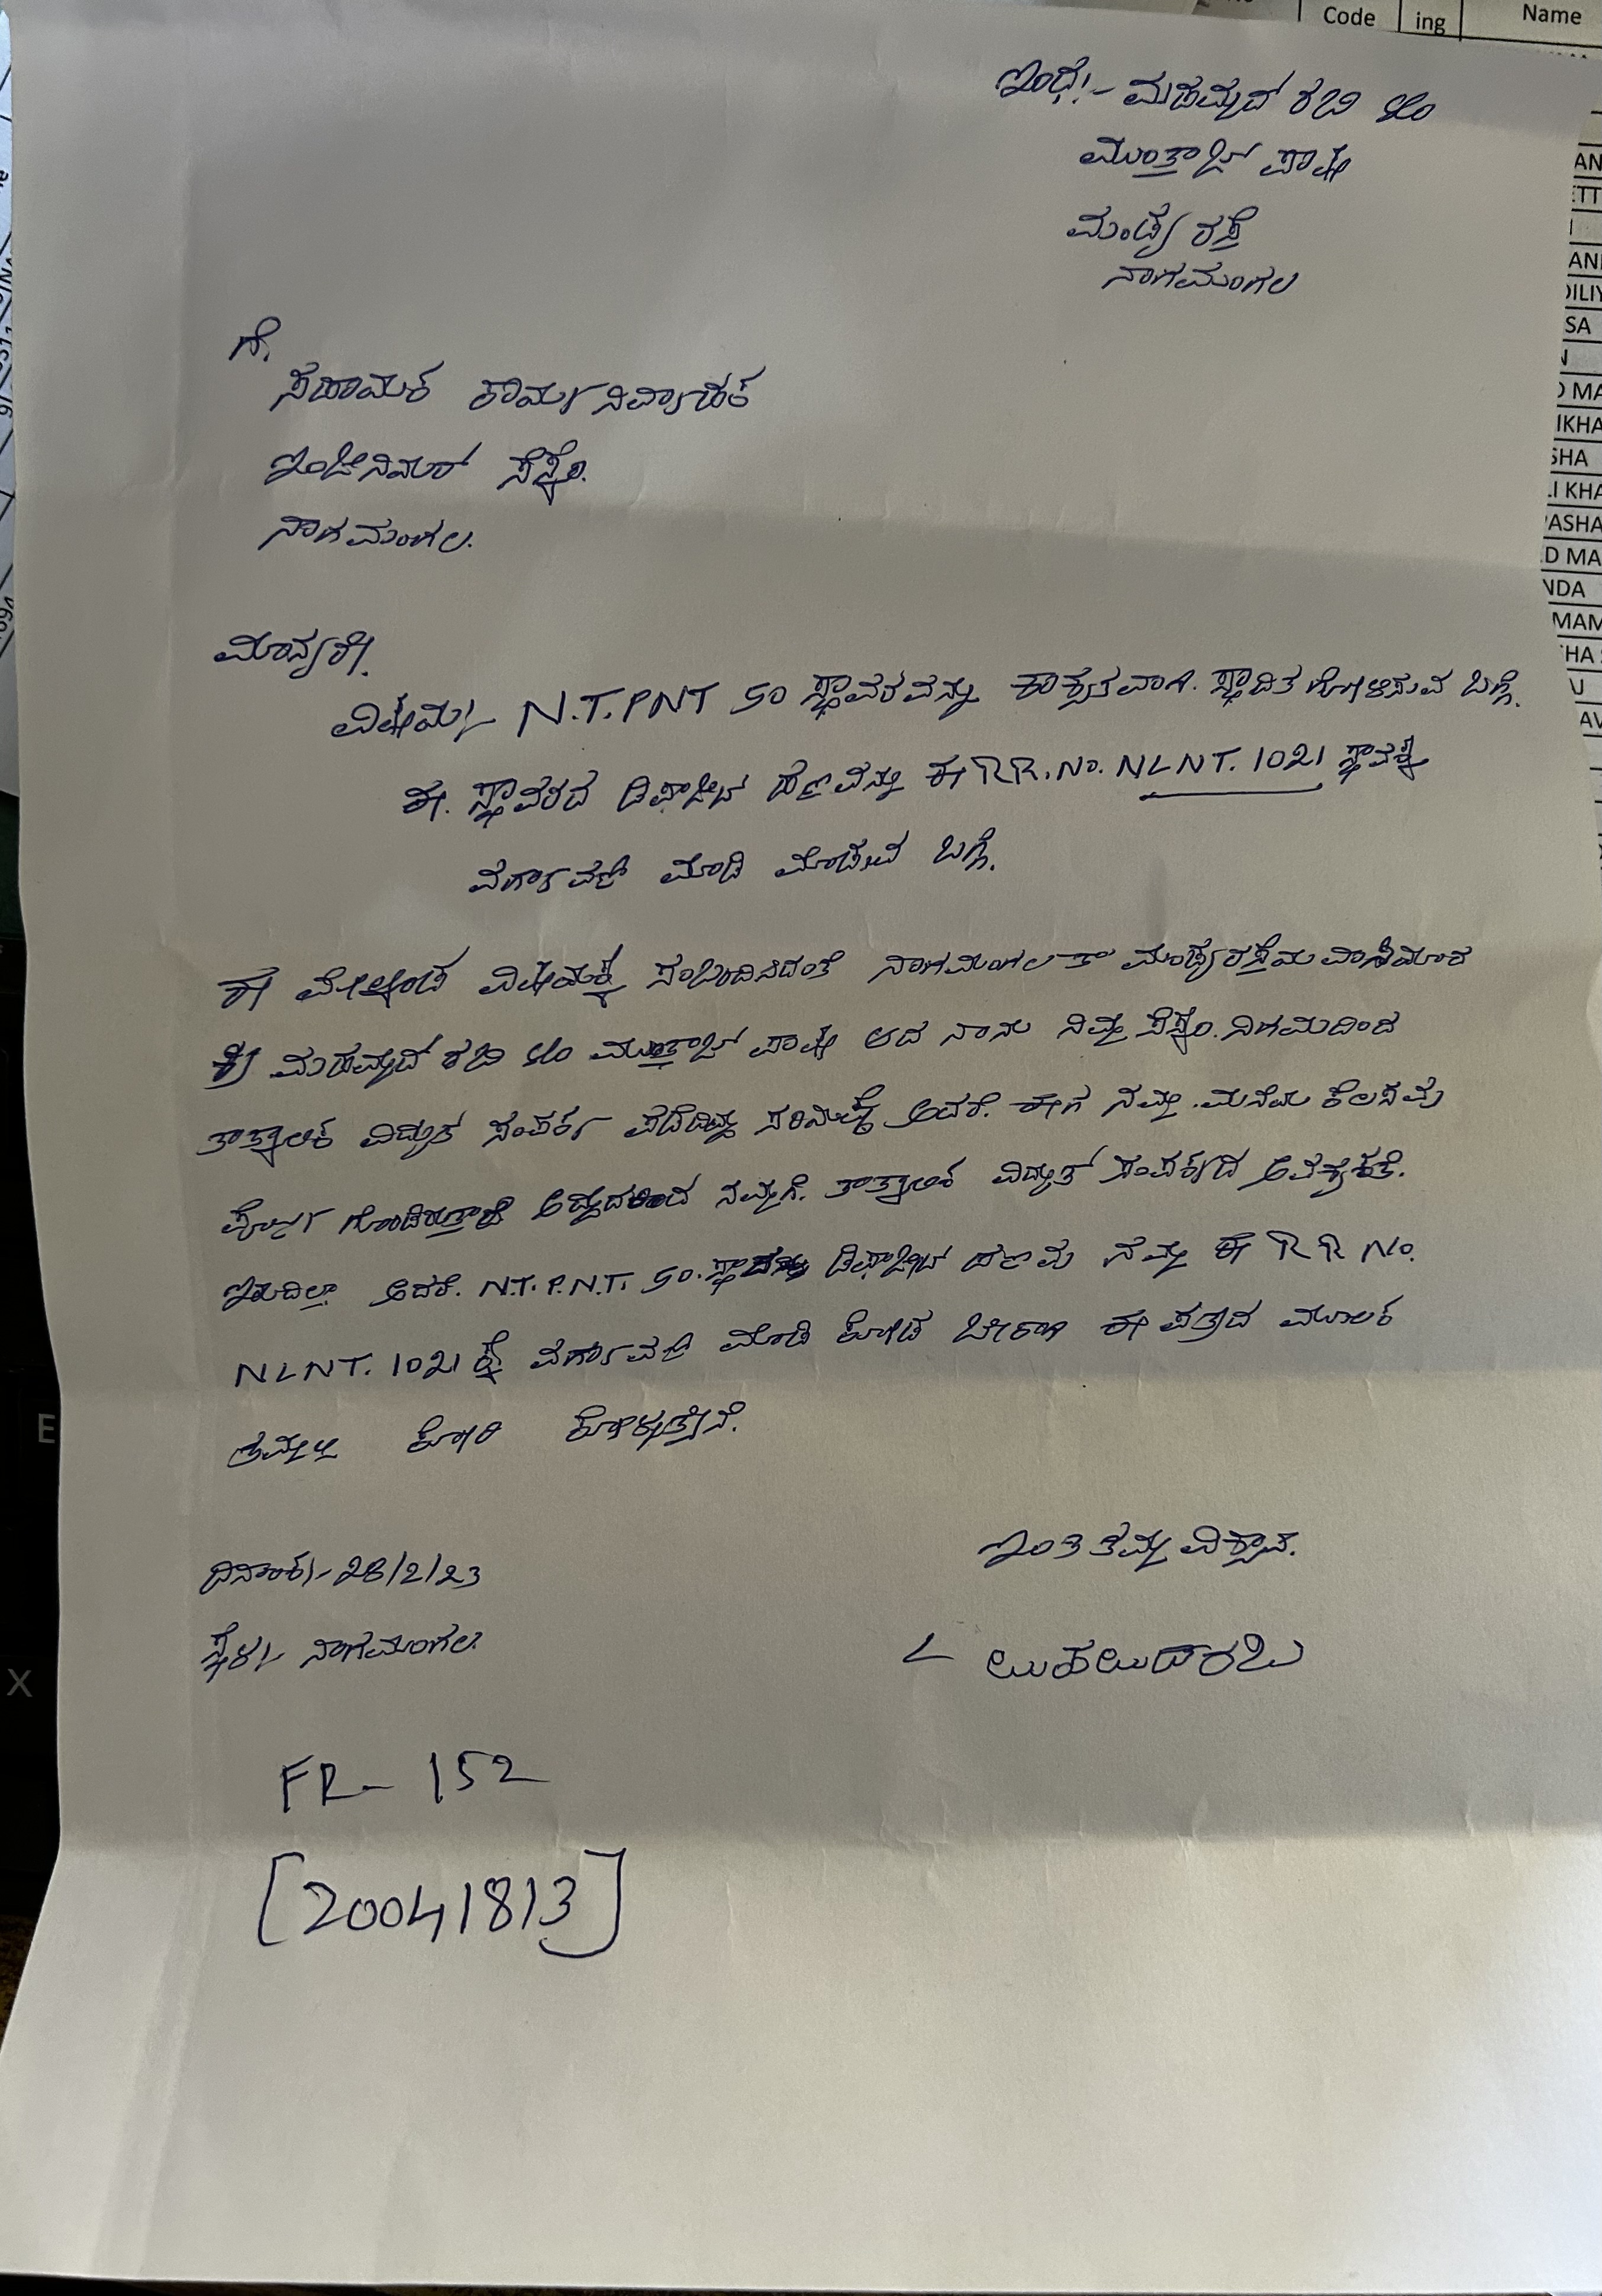 Code ing Name
ಇಂಧ:- ಮಹಮ್ಮದ್ ರಬಿ ಬಿಂ
ಮುಂತಾಜ್ ಪಾಷ
ಮಂಡ್ಯ ರಸ್ತೆ
ನಾಗಮಂಗಲ
ಗೆ,
ಸಹಾಯಕ ಕಾರ್ಯನಿರ್ವಾಹಕ
ಇಂಜೀನಿಯರ್ ಸೆಸ್ಕಾಂ.
ನಾಗಮಂಗಲ.
ಮಾನ್ಯರೇ,
ವಿಷಯ:- N.T.PNT 50 ಸ್ಥಾವರವನ್ನು ಶಾಶ್ವತವಾಗಿ. ಸ್ಥಗಿತಗೋಳಿಸುವ ಬಗ್ಗೆ.
ಈ. ಸ್ಥಾವರದ ಡಿಪಾಜೀಟ್ ಹಣವನ್ನು ಈ RR.No. NLNT. 1021 ಸ್ಥಾವರಕ್ಕೆ
ವರ್ಗಾವಣೆ ಮಾಡಿ ಕೊಡುವ ಬಗ್ಗೆ.
ಈ ಮೇಲ್ಕಂಡ ವಿಷಯಕ್ಕೆ ಸಂಬಂದಿಸಿದಂತೆ ನಾಗಮಂಗಲ ತಾ ಮಂಡ್ಯರಸ್ತೆಯ ವಾಸಿಯಾದ
ಶ್ರೀ ಮಹಮ್ಮದ್ ರಬಿ ಬಿಂ ಮುಂತಾಜ್ ಪಾಷ ಆದ ನಾನು ನಿಮ್ಮ ಸೆಸ್ಕಾಂ. ನಿಗಮದಿಂದ
ತಾತ್ಕಾಲಿಕ ವಿದ್ಯುತ ಸಂಪರ್ಕ ಪಡೆದಿದ್ದು ಸರಿಯಷ್ಟೆ ಆದರೆ. ಈಗ ನಮ್ಮ. ಮನೆಯ ಕೆಲಸವು
ಪೂರ್ಣಗೊಂಡಿರುತ್ತಾದೆ ಆದ್ದುದರಿಂದ ನಮ್ಮಗೆ. ತಾತ್ಕಾಲಿಕ ವಿದ್ಯುತ್ ಸಂಪರ್ಕದ ಅವಶ್ಯಕತೆ.
ಇರುದಿಲ್ಲಾ ಆದರೆ. N.T. P.N.T. 50. ಡಿಪಾಜೀಟ್ ಹಣವ ನಮ್ಮ ಈ RR No.
NLNT. 1021 ಕ್ಕೆ ವರ್ಗಾವಣೆ ಮಾಡಿ ಕೋಡ ಬೇಕಾಗಿ ಈ ಪತ್ರದ ಮೂಲಕ
ತಮ್ಮಲ್ಲಿ ಕೋರಿ ಕೊಳ್ಳುತ್ತೇನೆ.
ಇಂತಿ ತಮ್ಮ ವಿಶ್ವಾಸಿ.
ದಿನಾಂಕ:- 28/2/23
ಸ್ಥಳ:- ನಾಗಮಂಗಲ.
FR- 152
[20041813]